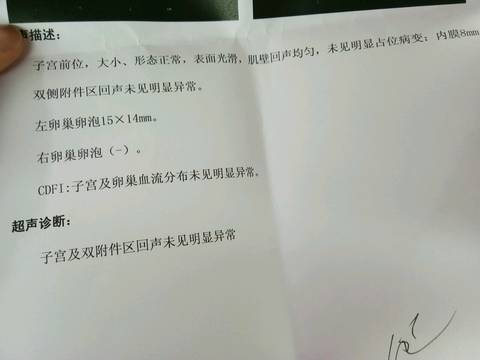 声描述：
子宫前位，大小、形态正常，表面光滑，肌壁回声均匀，未见明显占位病变；内膜8mm
双侧附件区回声未见明显异常。
左卵巢卵泡15×14mm。
右卵巢卵泡（-）。
CDFI:子宫及卵巢血流分布未见明显异常。
超声诊断：
子宫及双附件区回声未见明显异常